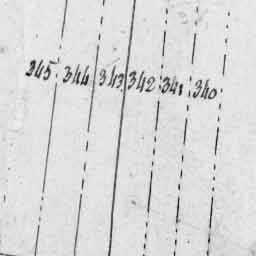 345 344 343 342 341 340